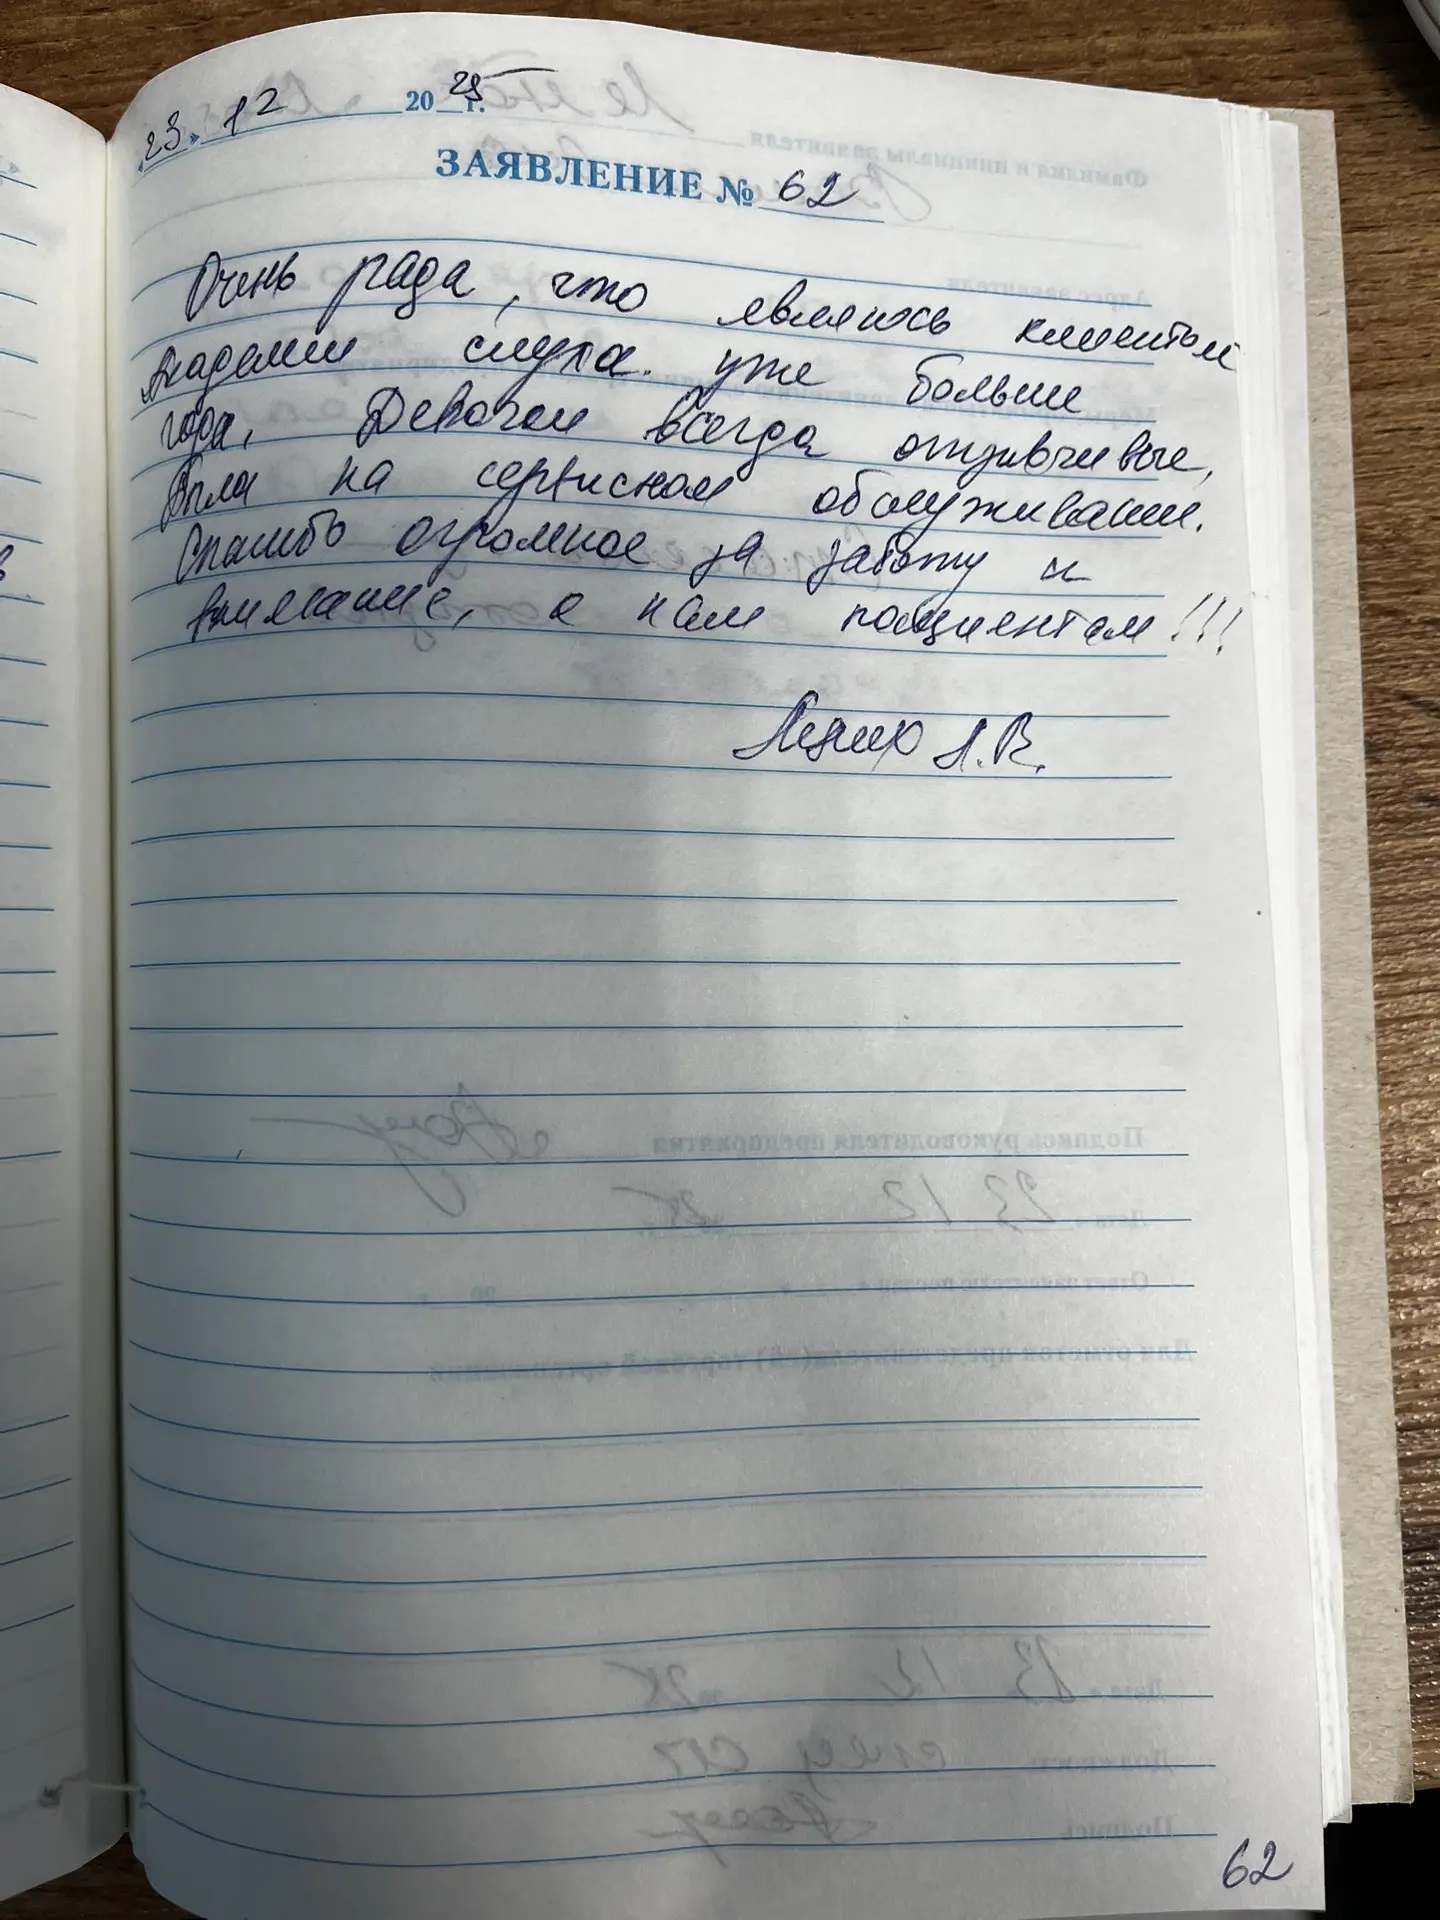 23. 12 20 25 г.
ЗАЯВЛЕНИЕ № 62
Очень рада, что являюсь клиентом
Академии слуха. уже больше
года. Девочки всегда отзывчивые,
Была на сервисном обслуживании.
Спасибо огромное за заботу и
внимание, к нам пациентам!!!
Л.В.
62